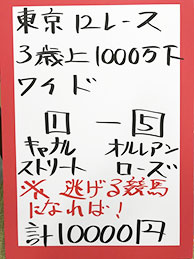 東京12レース
3歳上1000万下
ワイド
1-5
キャナル オルレアン
ストリート ローズ
※逃げる競馬
になれば!
計10000円